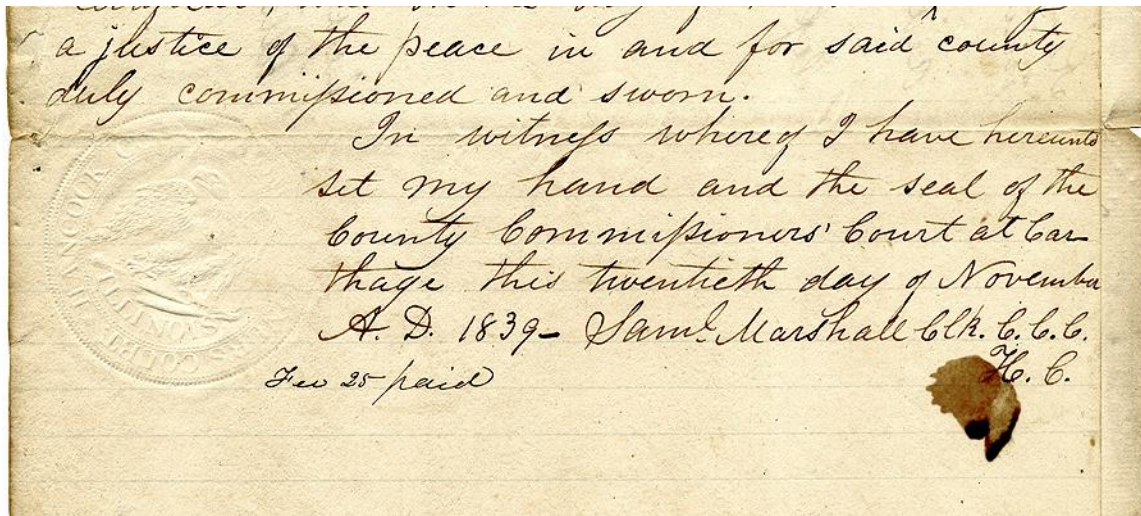 a justice of the peace in and for said county
duly commissioned and sworn.
In witness whereof I have hereunto
set my hand and the seal of the
County Commissioners' Court at Car-
thage this twentieth day of November
A. D. 1839– Saml. Marshall Clk. C.C.C.
H. C.
Fee 25 paid
ILLINOIS